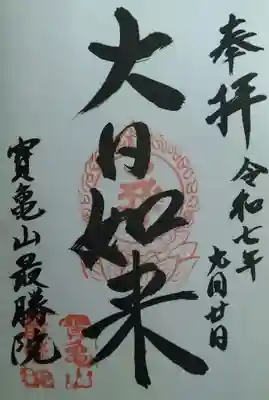 奉拝
令和七年
九月廿日
大日如来
寳亀山最勝院
寳亀山